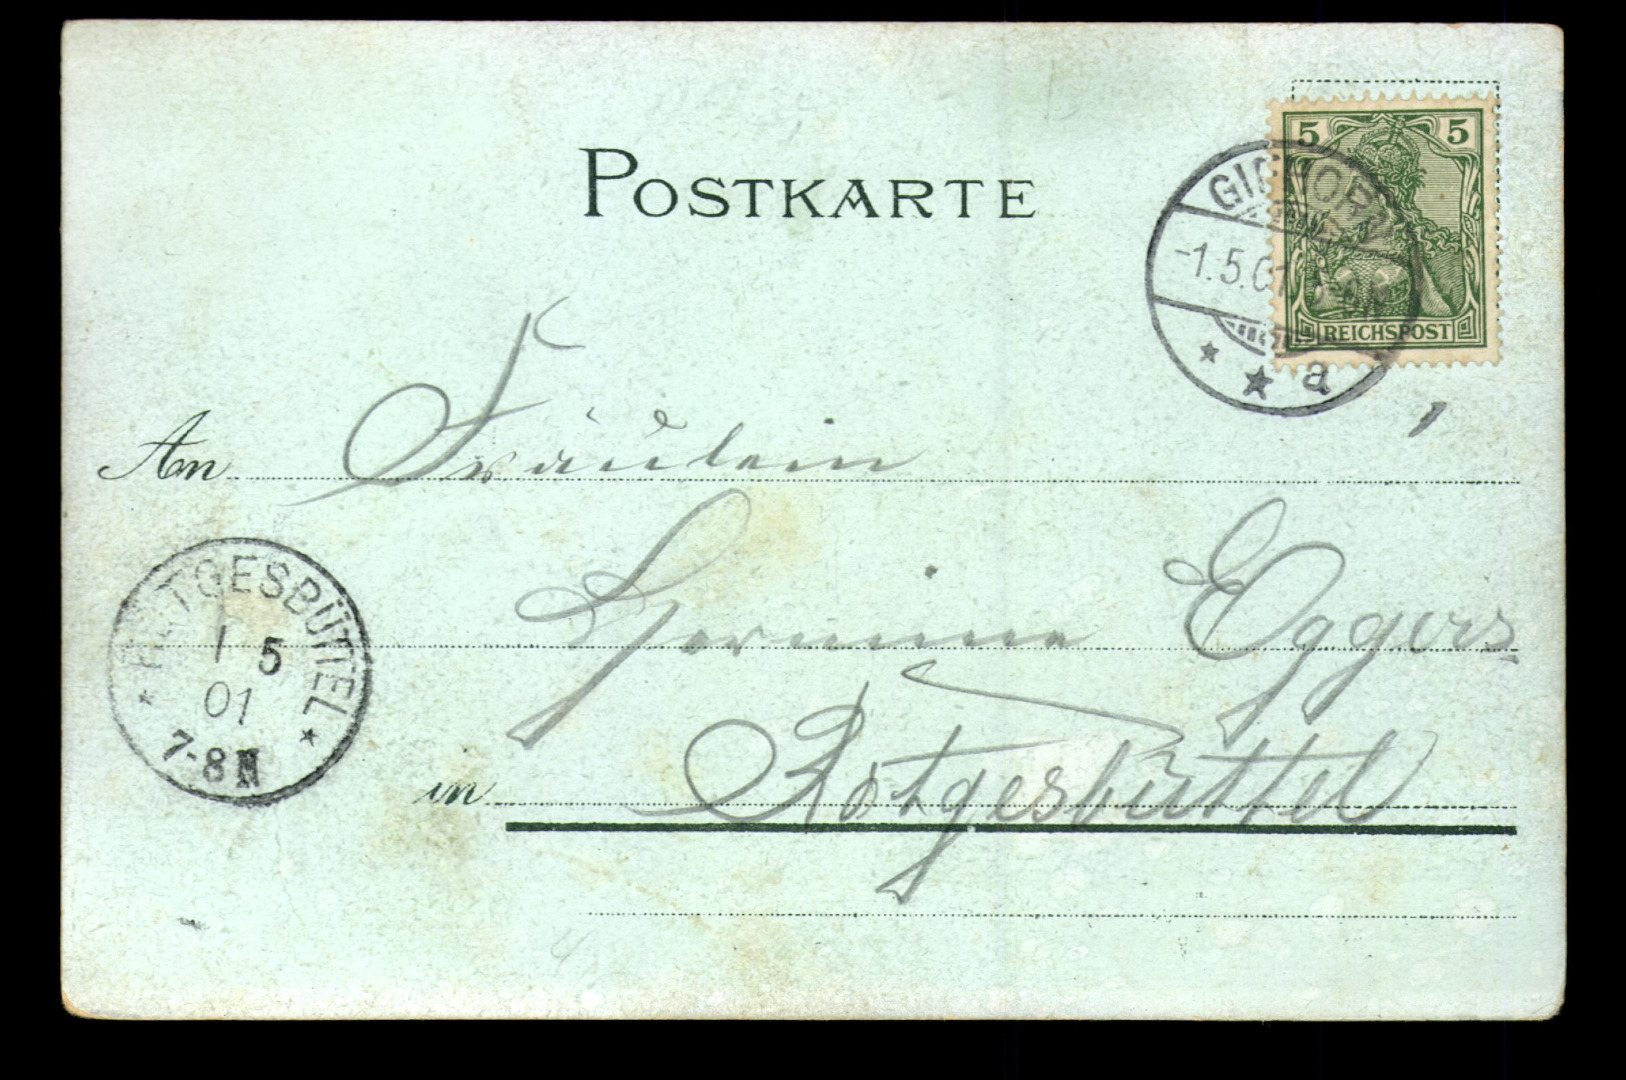 POSTKARTE
5 5
REICHSPOST
GIFHORN
-1.5.01
a
An Fräulein
Hermine Eggers
in Rötgesbüttel
RÖTGESBÜTTEL
1 5
01
7-8 N